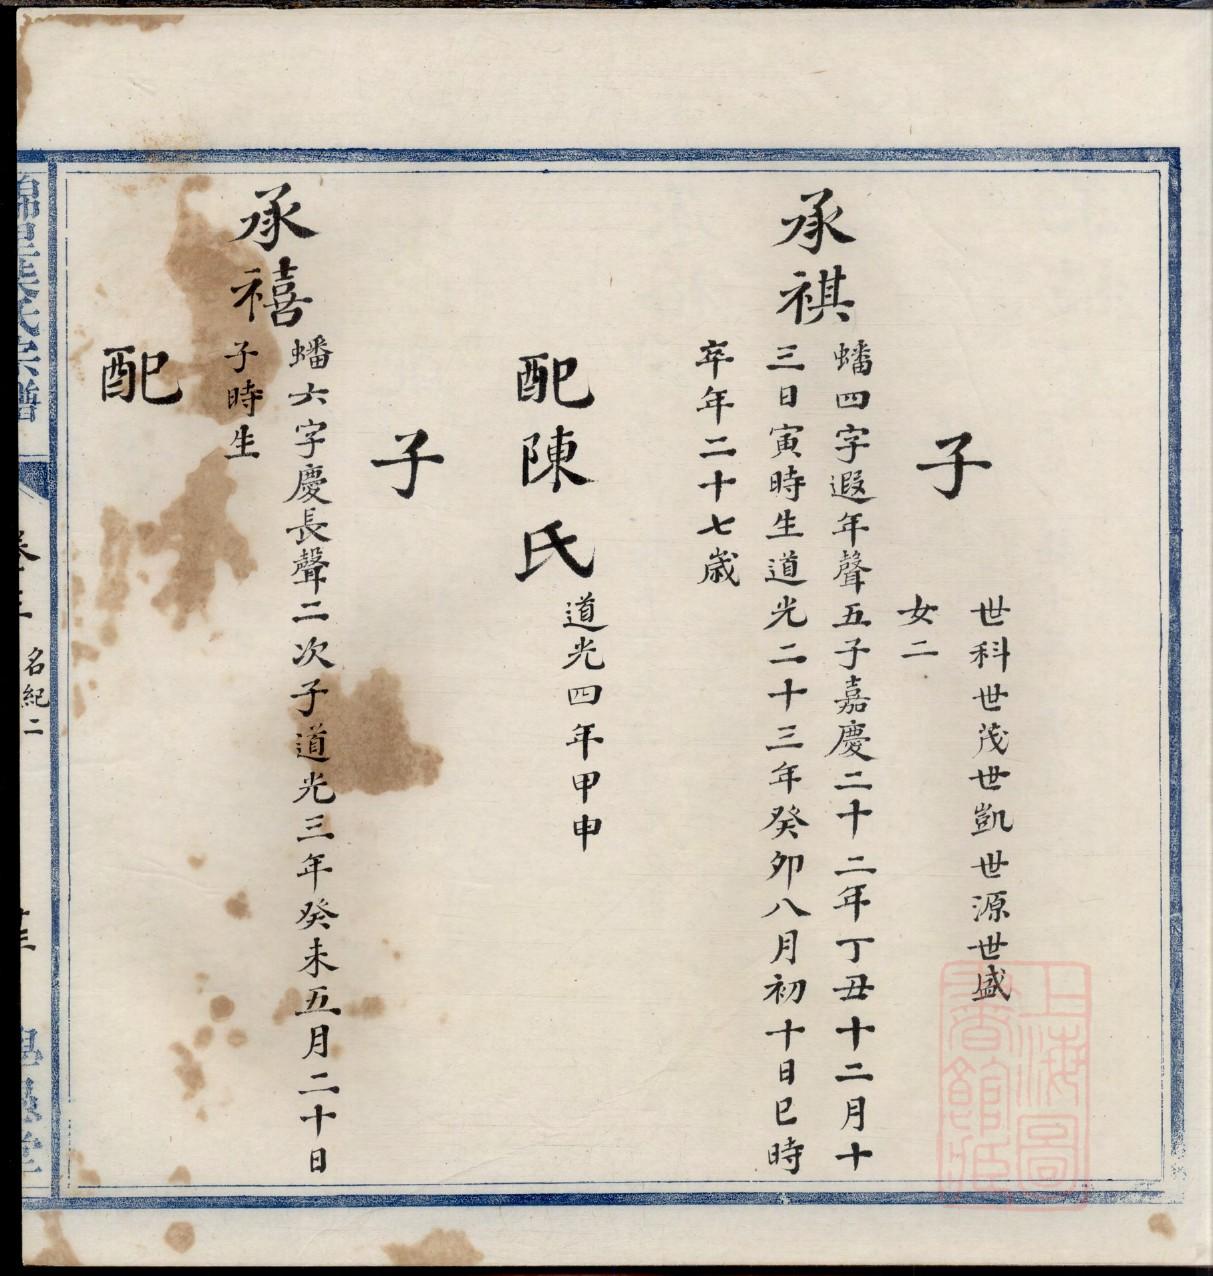 子
世科世茂世凱世源世盛
女二
承祺
蟠四字遐年聲五子嘉慶二十二年丁丑十二月十
三日寅時生道光二十三年癸卯八月初十日巳時
卒年二十七歲
配陳氏
道光四年甲申
子
承禧
蟠六字慶長聲二次子道光三年癸未五月二十日
子時生
配
氏宗譜
名紀二
上海圖
書館藏